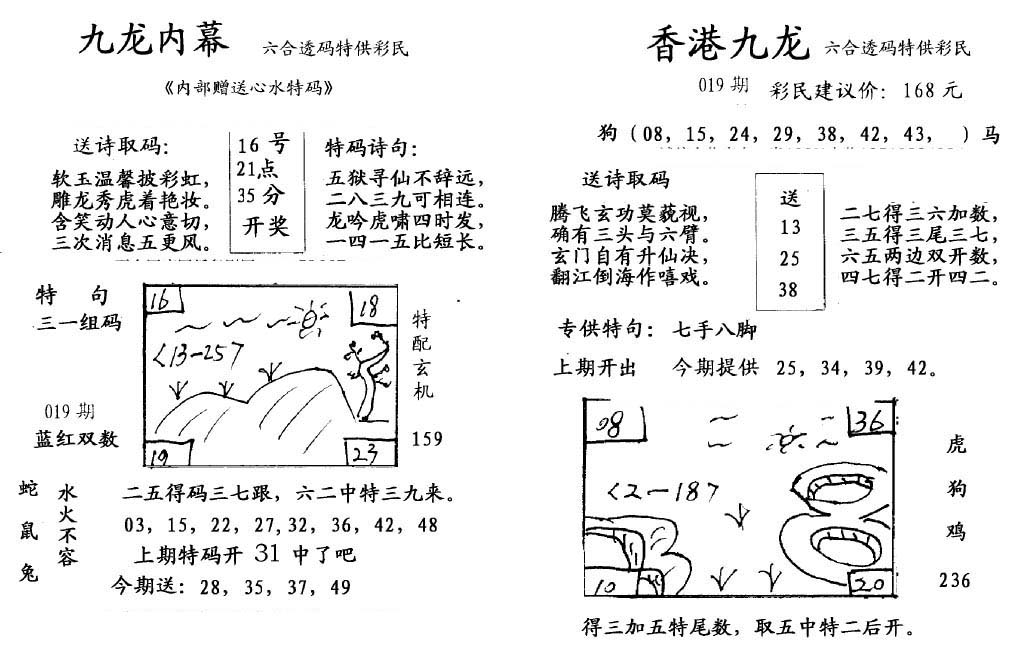 九龙内幕 六合透码特供彩民
《内部赠送心水特码》
送诗取码：
软玉温馨披彩虹，
雕龙秀虎着艳妆。
含笑动人心意切，
三次消息五更风。
16 号
21点
35 分
开奖
特码诗句：
五狱寻仙不辞远，
二八三九可相连。
龙吟虎啸四时发，
一四一五比短长。
特 句
三一组码
019 期
蓝红双数
16
18
<13-257
19
23
特配玄机
159
蛇 鼠 兔
水火不容
二五得码三七跟，六二中特三九来。
03，15，22，27,32，36，42，48
上期特码开 31 中了吧
今期送：28，35，37，49
香港九龙 六合透码特供彩民
019 期 彩民建议价：168 元
狗（08，15，24，29，38，42，43， ）马
送诗取码
腾飞玄功莫藐视，
确有三头与六臂。
玄门自有升仙决，
翻江倒海作嘻戏。
送
13
25
38
二七得三六加数，
三五得三尾三七，
六五两边双开数，
四七得二开四二。
专供特句：七手八脚
上期开出 今期提供 25，34，39，42。
08
36
<2-187
10
20
虎
狗
鸡
236
得三加五特尾数，取五中特二后开。